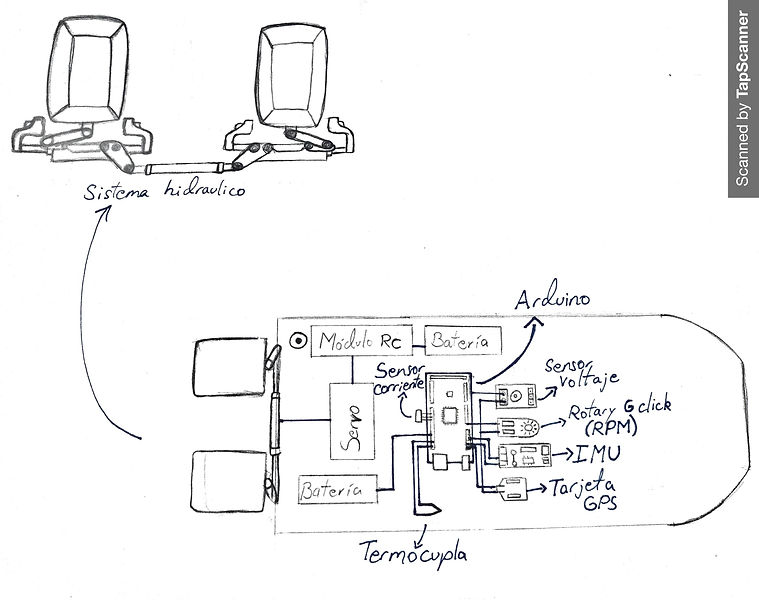 Scanned by TapScanner
Sistema hidraulico
Arduino
Módulo Rc
Batería
Sensor
corriente
Sensor
voltaje
Rotary G click
(RPM)
Servo
IMU
Batería
Tarjeta
GPS
Termocupla